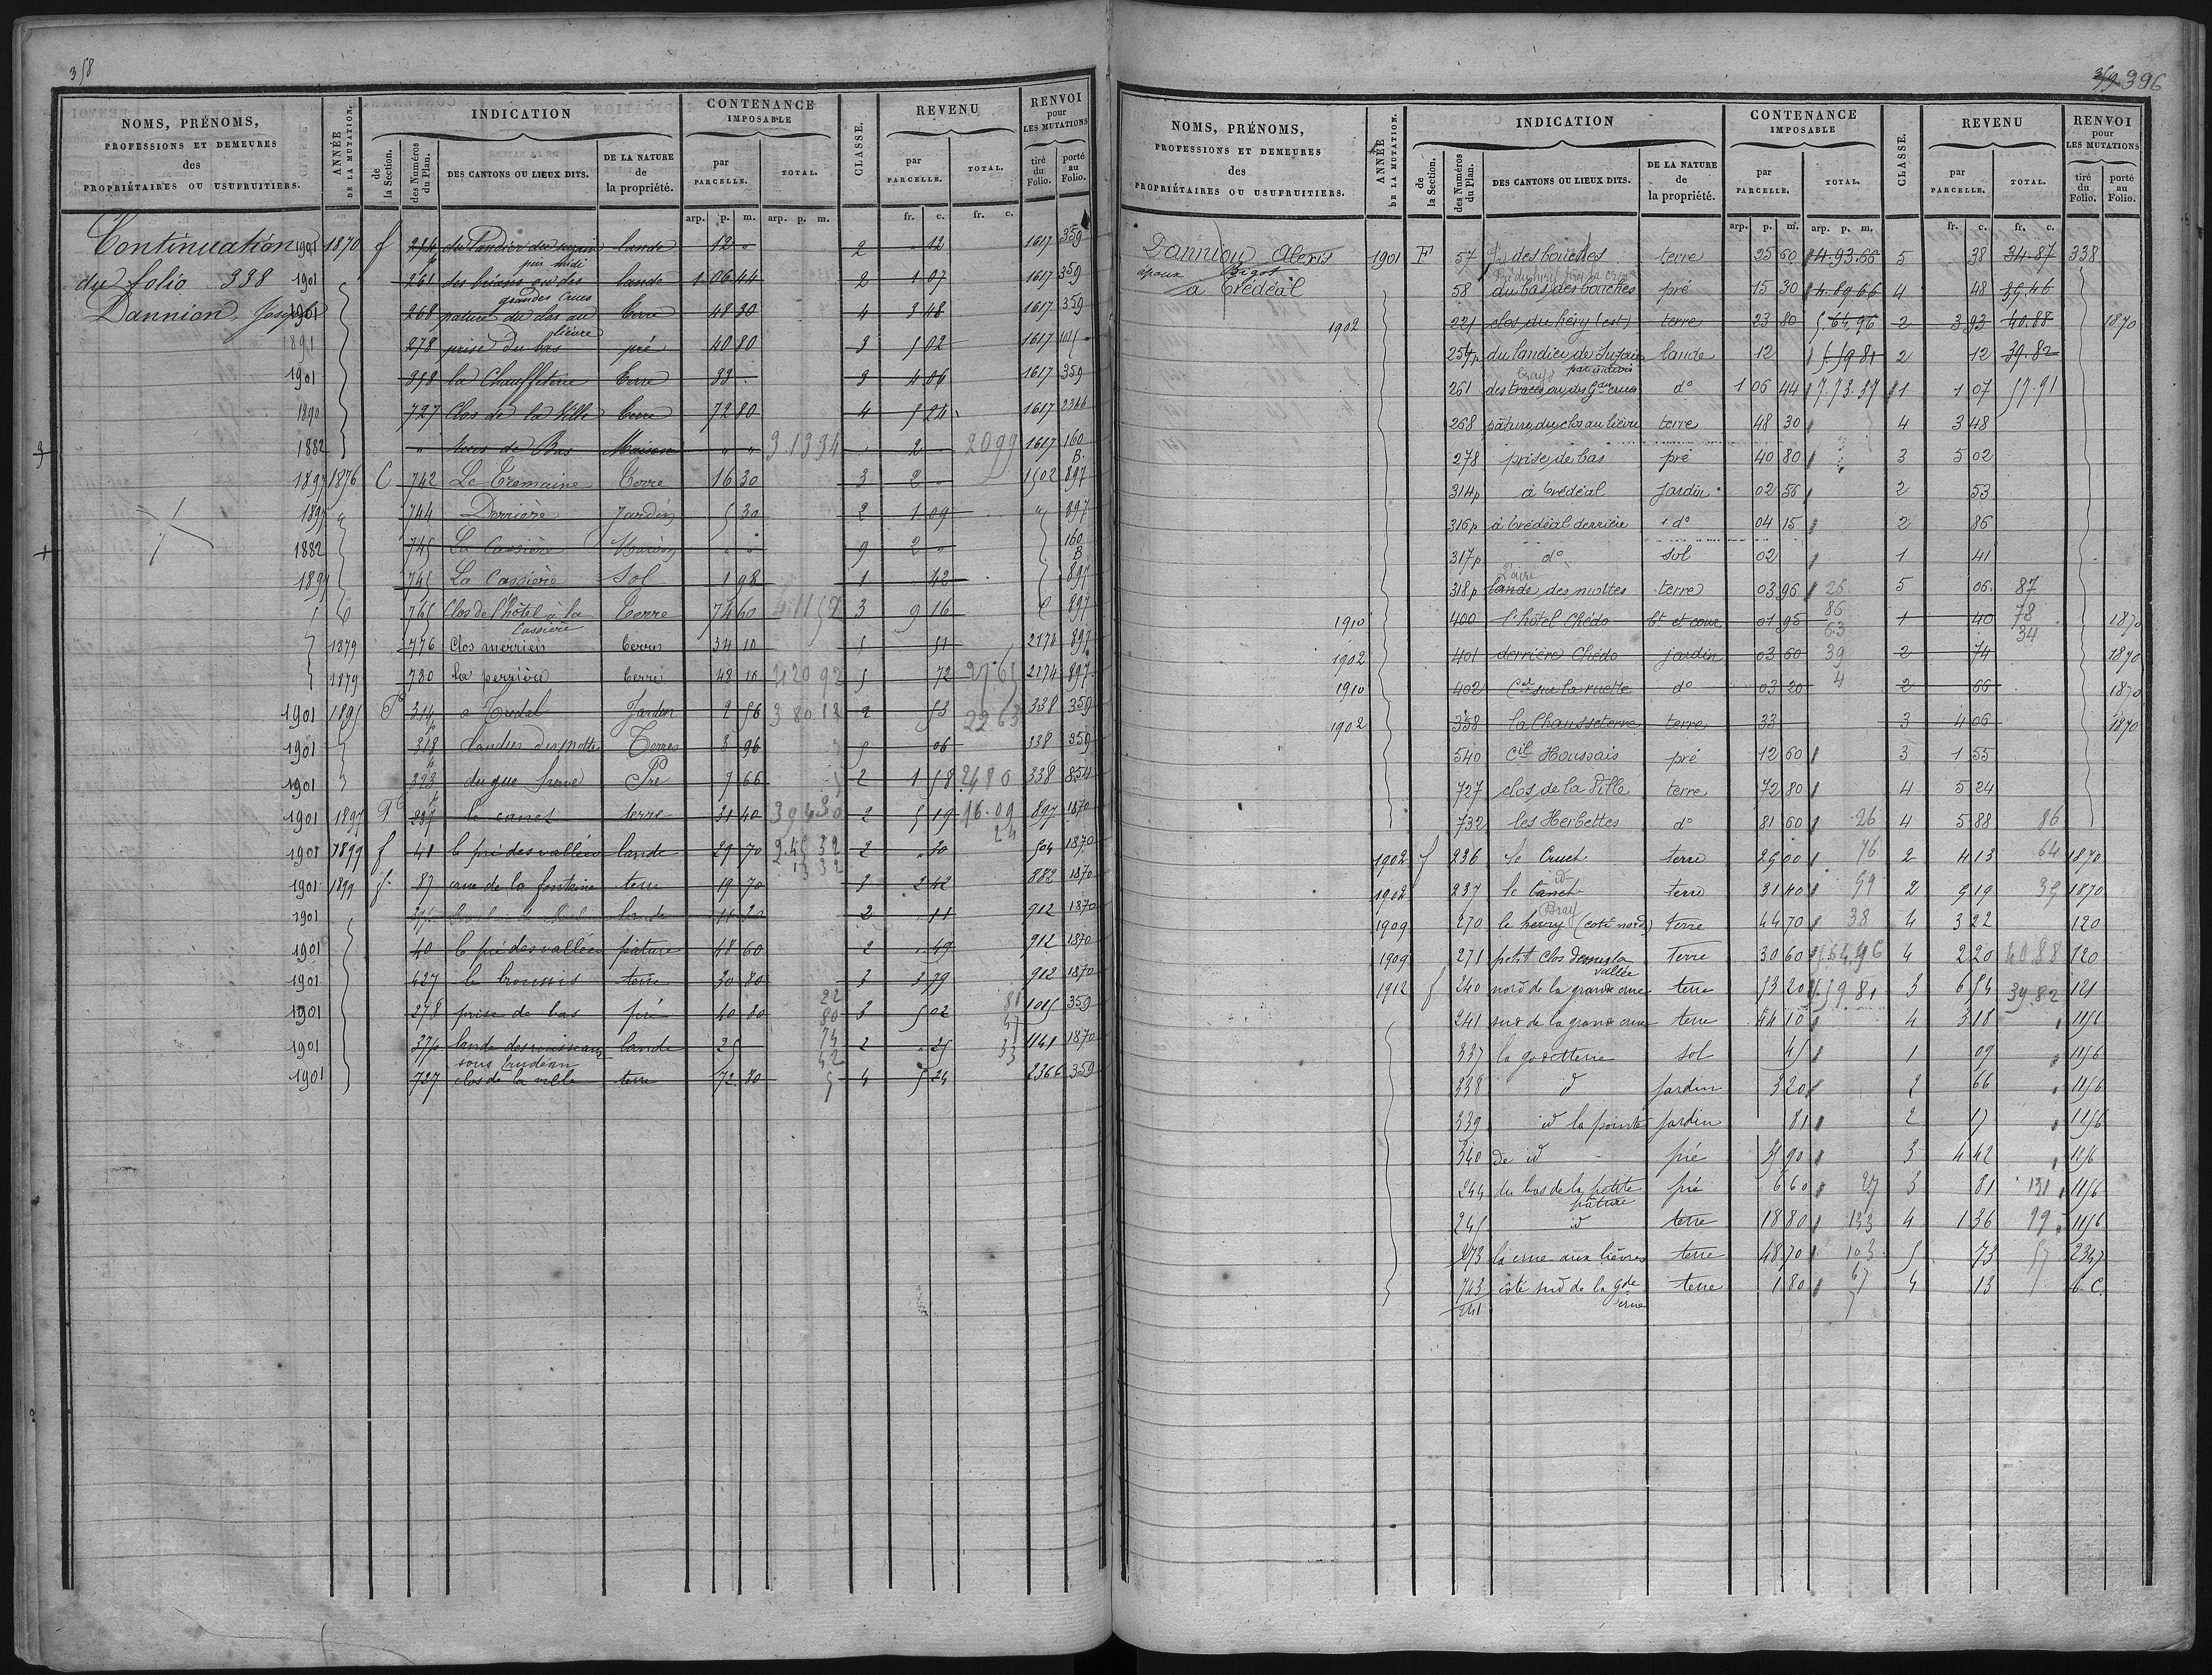 358
NOMS, PRÉNOMS, PROFESSIONS ET DEMEURES des PROPRIÉTAIRES OU USUFRUITIERS.
ANNÉE DE LA MUTATION.
INDICATION
de la Section.
des Numéros du Plan.
DES CANTONS OU LIEUX DITS.
DE LA NATURE de la propriété.
CONTENANCE IMPOSABLE
par PARCELLE.
TOTAL.
CLASSE.
REVENU
par PARCELLE.
TOTAL.
RENVOI pour LES MUTATIONS
tiré du Folio.
porté au Folio.
arp. p. m. arp. p. m. fr. c. fr. c.
Continuation 1901 1870 f lande 12 " 2 " 12 1617 359
du folio 338 1901 261 lande 1 06 44 2 1 07 1617 359
grandes crues
Dannion Joseph 1901 268 pature du clos au lièvre terre 48 30 4 3 48 1617 359
1891 278 prise du bas pré 40 80 3 5 02 1617
1901 358 la Chauffeterie terre 33 . 3 4 06 1617 359
1890 727 Clos de la Ville terre 72 80 4 5 24 1617 2366
1882 " Maison " " 3.13 34 2 20 99 1617 160 B.
1897 1876 C 742 La Tremaine Terre 16 30 3 2 " 1502 897
1897 744 Derrière Jardin 5 30 2 1 09 " 897
1882 745 La Cassière Maison " " 9 2 " 160 B
1897 745 La Cassière Sol 1 98 1 42 897
765 Clos de l'hôtel à la Cassière Terre 74 60 4 11 52 3 9 16 897
1879 776 Clos merrien terre 34 10 5 51 2174 897
1879 780 la perrière terre 48 10 4 20 92 5 72 27 65 2174 897
1901 1895 F 314 a Tredal Jardin 2 56 3 80 12 2 53 22 63 338 359
1901 318 Landes des mottes Terres 3 96 5 06 338 359
1901 323 du gue Pré 7 66 2 1 58 24 80 338 854
1901 1897 F 237 le canet terre 31 40 3 94 30 2 5 19 16.09 897 1870
24
1901 1899 f 41 le pré des vallées lande 29 70 2.45 32 2 " 30 504 1870
13 32
1901 1899 f. 87 crue de la fontaine terre 19 70 3 2 42 882 1870
1901 lande 11 30 2 " 11 912 1870
1901 40 le pré des vallées pature 48 60 2 " 49 912 1870
1901 427 le broussis terre 30 80 3 3 79 912 1870
1901 278 prise de bas pré 40 80 3 5 02 1015 359
1901 lande des ruisseaux lande 25 2 " 25 1141 1870
1901 727 clos de la ville terre 72 80 4 5 24 2366 359
359 396
NOMS, PRÉNOMS, PROFESSIONS ET DEMEURES des PROPRIÉTAIRES OU USUFRUITIERS.
ANNÉE DE LA MUTATION.
INDICATION
de la Section.
des Numéros du Plan.
DES CANTONS OU LIEUX DITS.
DE LA NATURE de la propriété.
CONTENANCE IMPOSABLE
par PARCELLE.
TOTAL.
CLASSE.
REVENU
par PARCELLE.
TOTAL.
RENVOI pour LES MUTATIONS
tiré du Folio.
porté au Folio.
arp. p. m. arp. p. m. fr. c. fr. c.
Danniou Alexis 1901 F 57 des bouches terre 25 60 4.93.66 5 38 34.87 338
époux Bigot
à Trédéal 58 du bas des bouches pré 15 30 4.89 66 4 48 35.46
1902 221 clos du héry (est) terre 23 80 5.64.96 2 3 93 40.88 1870
254p du landier de lande 12 5 59 81 2 12 39.82
par indivis
261 des d° 1 06 44 7.73.37 1 1 07 57.91
268 pâture du clos au lièvre terre 48 30 4 3 48
278 prise de bas pré 40 80 3 5 02
314p à Trédéal Jardin 02 56 2 53
316p à Trédéal derrière d° 04 15 2 86
317p d° sol 02 1 41
318p lande des mottes terre 03 96 25 5 06 87
1910 400 l'hôtel Chédo bt et cour 01 95 86 1 40 78 1870
63 34
1902 401 derrière Chédo jardin 03 60 39 2 74 1870
1910 402 Ctl sur la ruelle d° 03 20 4 2 66 1870
1902 358 la Chausseterre terre 33 3 4 06 1870
540 Ctl Houssais pré 12 60 3 1 55
727 clos de la Ville terre 72 80 4 5 24
732 les Herbettes d° 81 60 26 4 5 88 86
1902 f 236 le Cruet terre 25 00 76 2 4 13 64 1870
1902 237 le Canet id terre 31 40 59 2 5 19 35 1870
1909 270 le herry (coté nord) Bray terre 44 70 38 4 3 22 120
1909 271 petit clos dessus la vallée terre 30 60 5.64.96 4 2 20 40.88 120
1912 f 240 nord de la grande crue terre 53 20 5.59 81 3 6 54 39.82 121
241 sud de la grande crue terre 44 10 4 3 18 1156
337 la gosetterie sol 45 1 09 1156
338 id jardin 3 20 2 66 1156
339 id la pointe jardin 81 2 17 1156
340 de id pré 35 90 3 4 42 1156
244 du bas de la petite pâture pré 6 60 27 3 81 131 1156
245 id terre 18 80 133 4 1 36 99 1156
273 la crue aux lièvres terre 48 70 103 5 73 57 2347
743/241 côté sud de la gde crue terre 1 80 67 4 13 6. C.